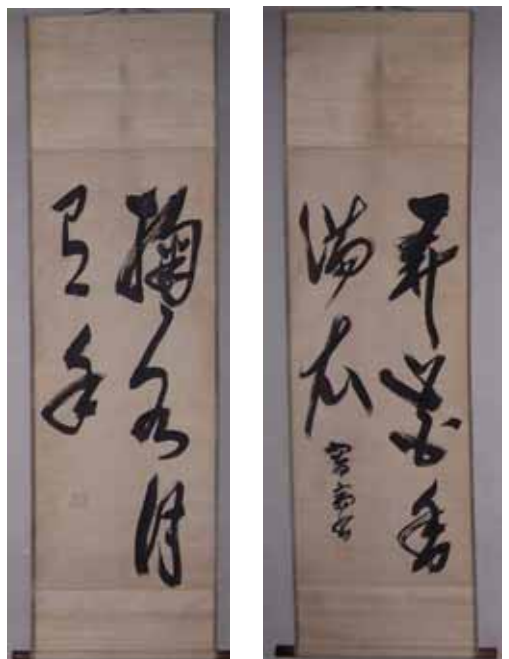 掬水月
在手
弄花香
満衣